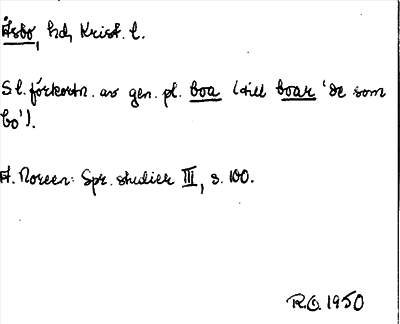 Åsbo, hd, Krist. l.
Sl. förkortn. av gen. pl. boa (till boar 'de som
bo').
A. Noreen: Spr. studier III, s. 100.
R.O. 1950